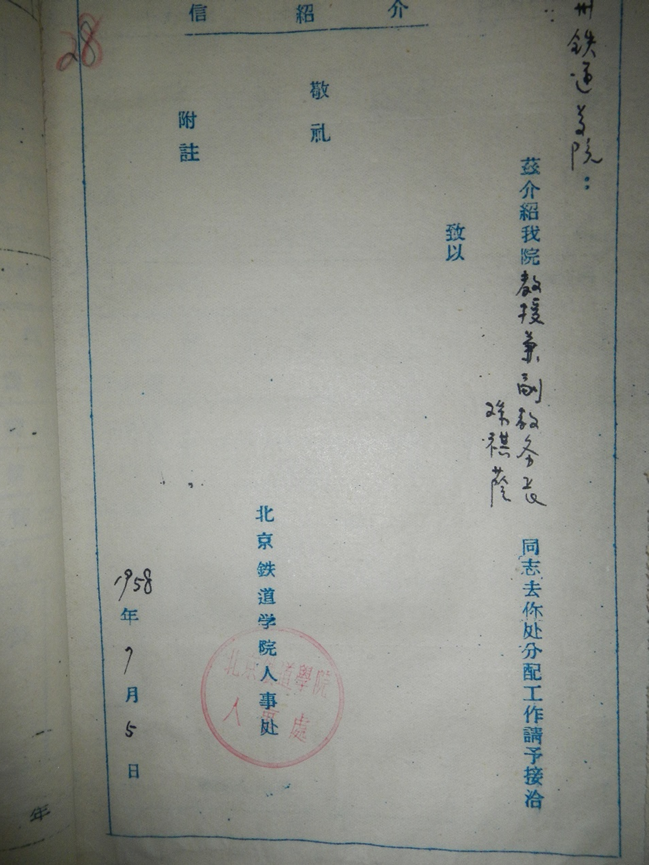 介紹信
州鉄道学院：
茲介紹我院教授兼副教务长
祺蔭
同志去你处分配工作請予接洽
致以
敬礼
北京鉄道学院人事处
北京鐵道學院
人事處
附註
1958年7月5日
28
年